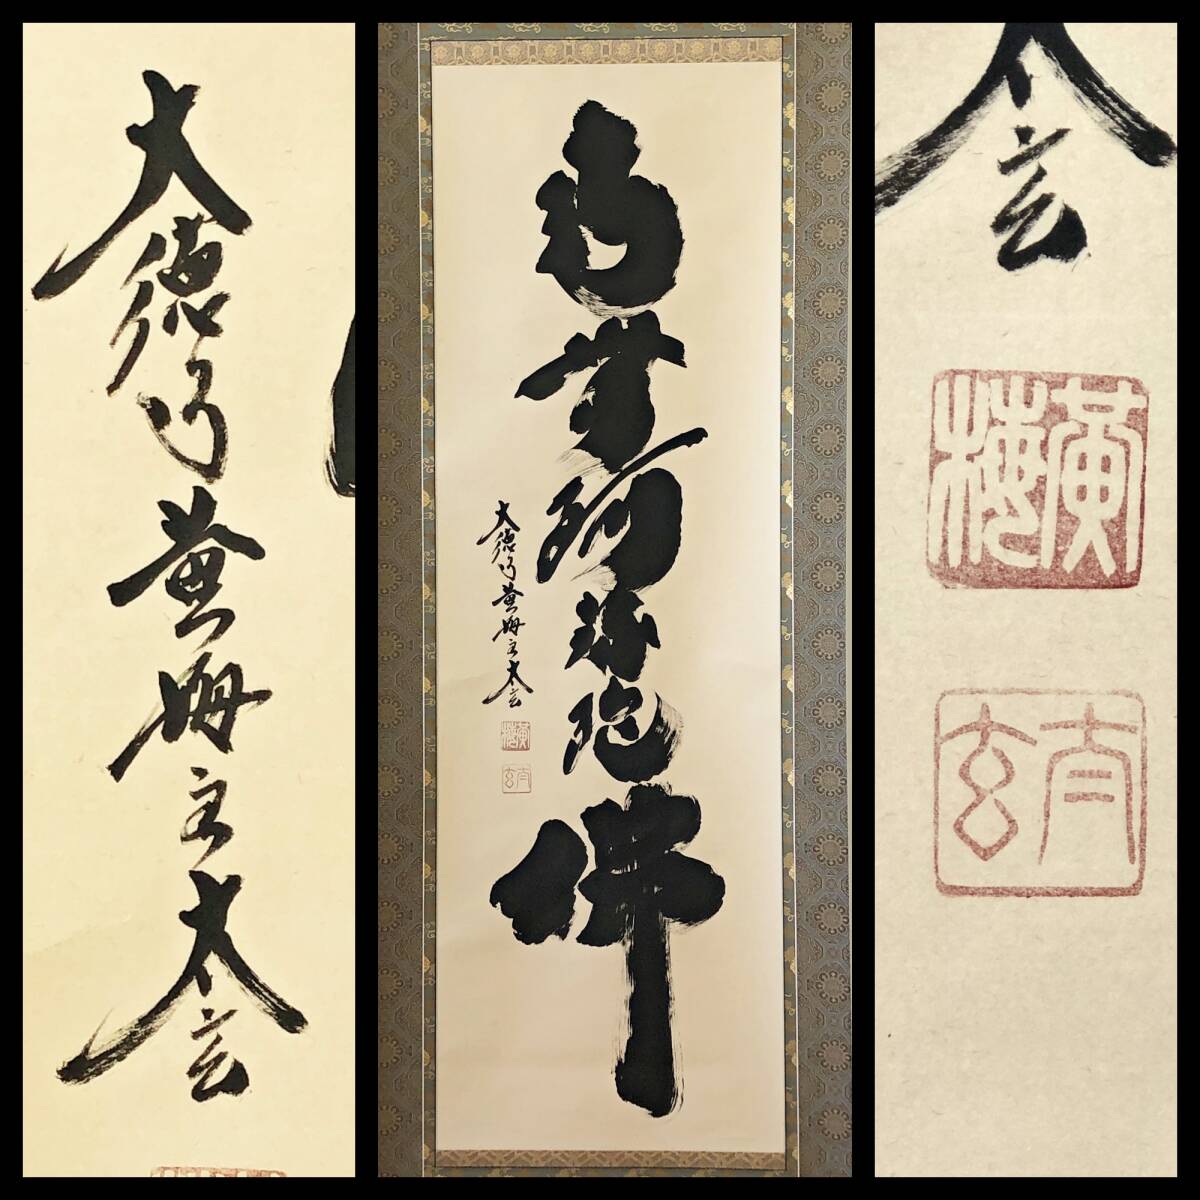 大徳寺黄梅主太玄
南無阿弥陀佛
大徳寺黄梅主太玄
黄梅
太玄
太玄
黄梅
太玄